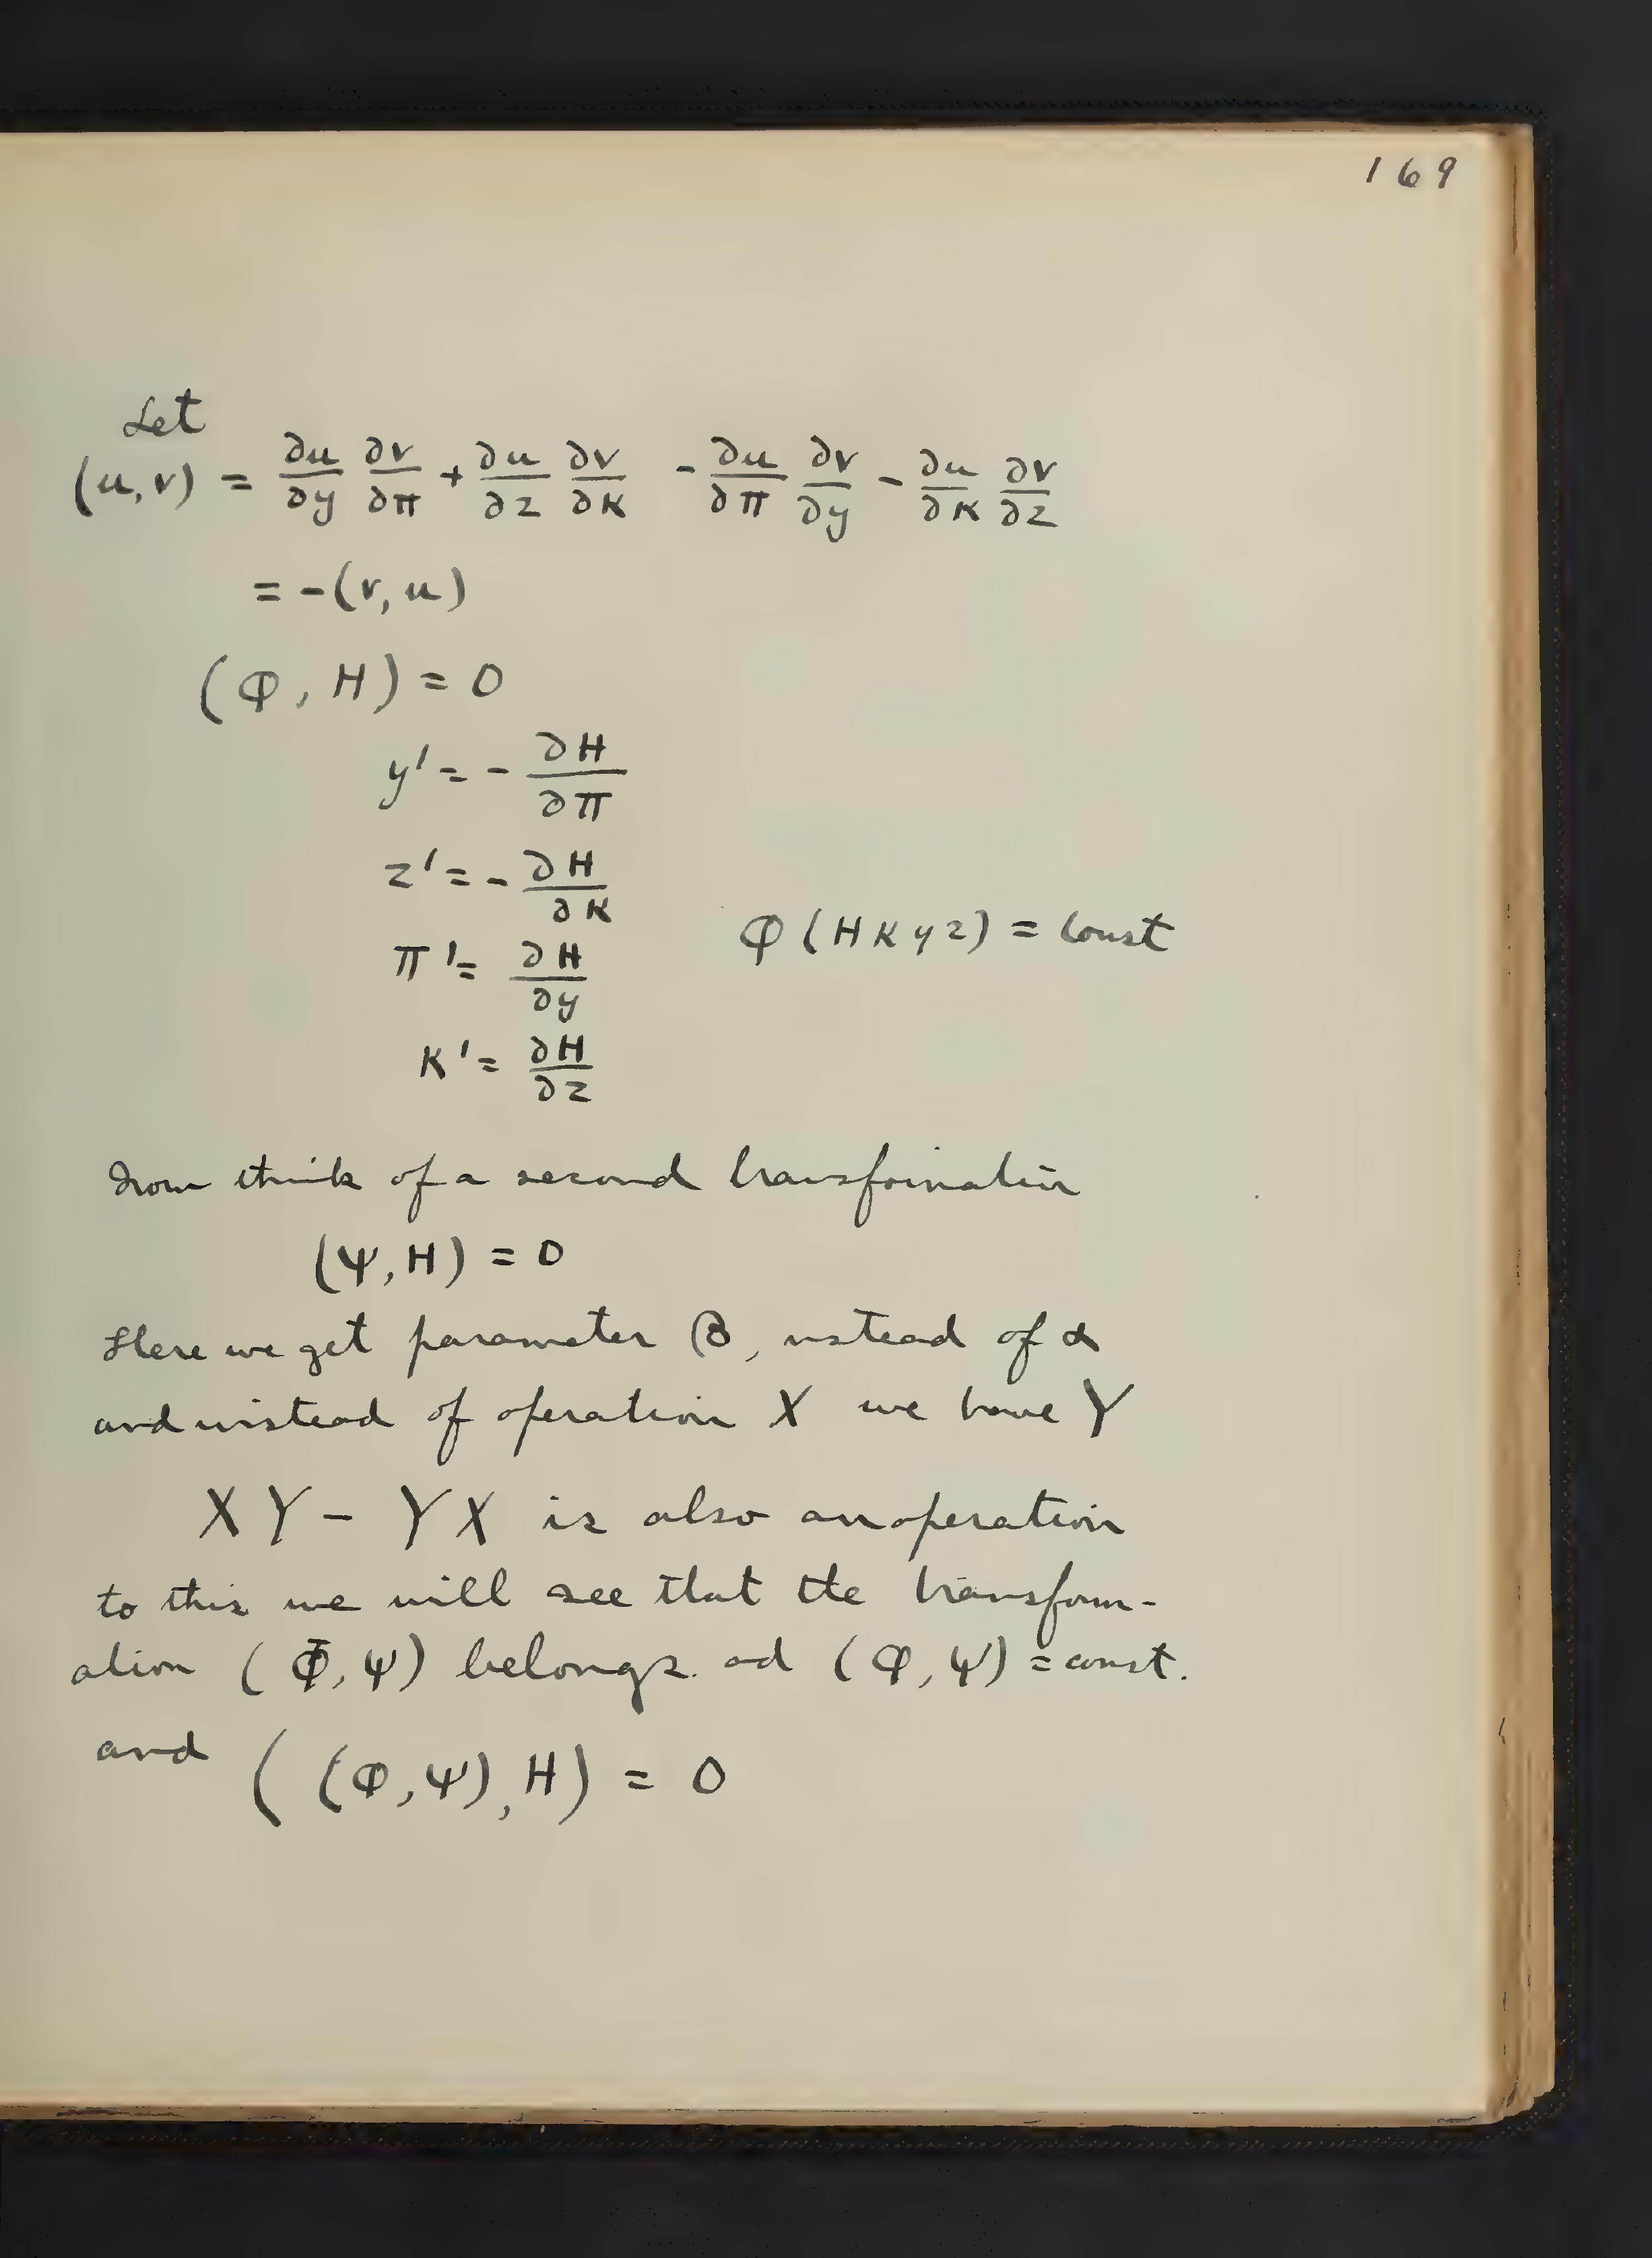 169
Let
(u,v) = ∂u/∂y ∂v/∂π + ∂u/∂z ∂v/∂κ - ∂u/∂π ∂v/∂y - ∂u/∂κ ∂v/∂z
= -(v,u)
(Φ, H) = 0
y' = - ∂H/∂π
z' = - ∂H/∂κ
Φ(H κ y z) = Const
π' = ∂H/∂y
κ' = ∂H/∂z
Now think of a second transformation
(Ψ, H) = 0
Here we get parameter β, instead of α
and instead of operation X we have Y
XY - YX is also an operation
to this we will see that the transform-
ation (Φ, Ψ) belongs. ad (Φ, Ψ) = const.
and ((Φ,Ψ), H) = 0